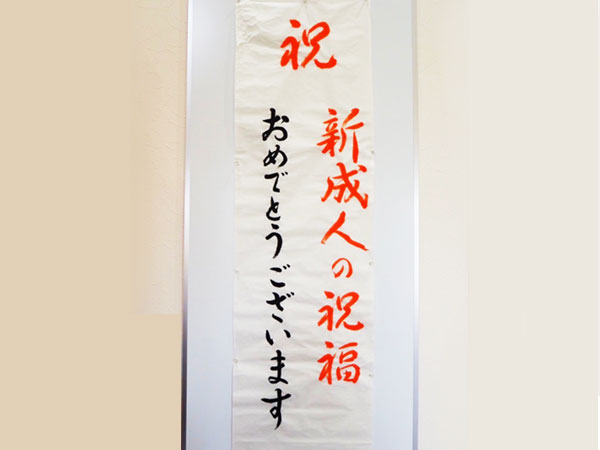 祝
新成人の祝福
おめでとうございます